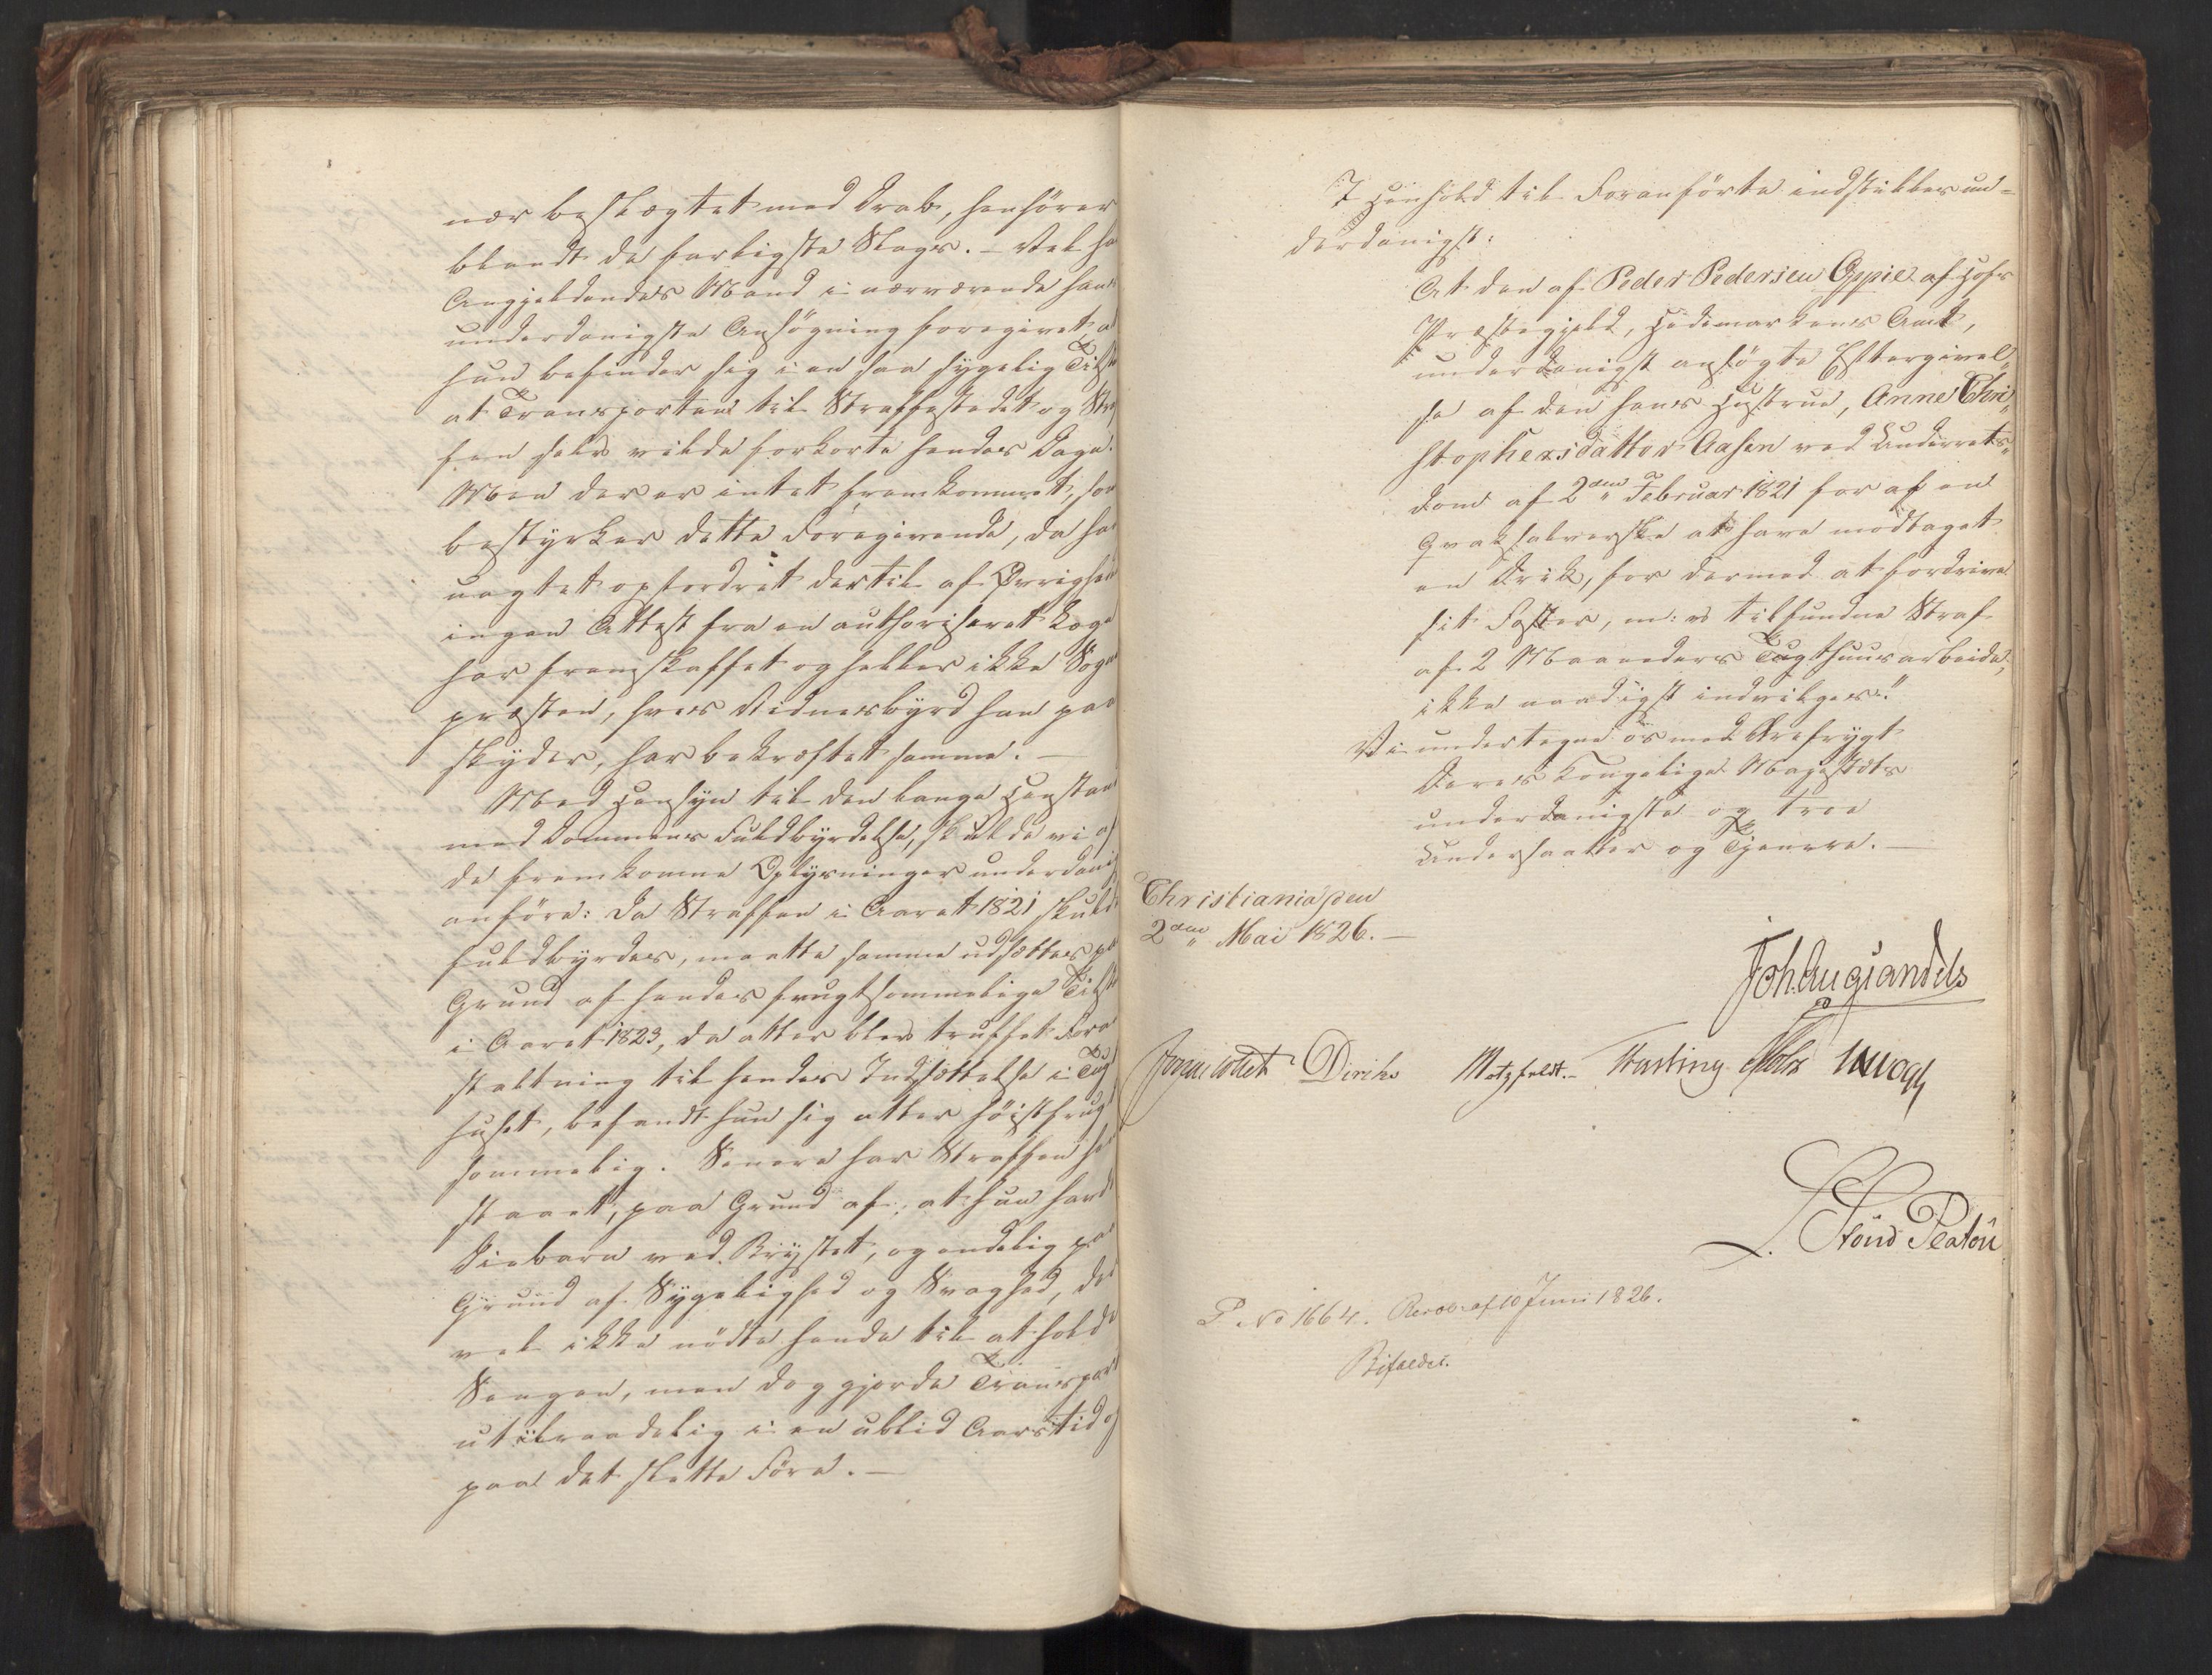 nær beslægtet med Drab, henhører
blandt de farligste Slags. – Vel ha
Angjeldendes Mand i nærværende hans
underdanigste Ansøgning foregivet, at
hun befinder sig i en saa sygelig Tilst
at Transporten til Straffestedet og Stra
fen selv vilde forkorte hendes Dage.
Men der er intet fremkommet, som
bestyrker dette Foregivende, da han
uagtet opfordret dertil af Øvrighed
ingen Attest fra en authoriseret Læge
har fremskaffet og heller ikke Sogne
præsten, hvis Vidnesbyrd han paa
skyder, har bekræftet samme. —
Med Hensyn til den lange Henstan
med Dommens Fuldbyrdelse, skulde vi af
de fremkomne Oplysninger underdanig
anføre: Da Straffen i Aaret 1821 skulde
fuldbyrdes, maatte samme udsættes paa
Grund af hendes frugtsommelige Tilst
i Aaret 1823, da atter blev truffet Fora
staltning til hendes Indsættelse i Tugt
huset, befandt hun sig atter høist frugt
sommelig. Senere har Straffen hen
staaet, paa Grund af, at hun havde
Diebarn ved Brystet, og endelig paa
Grund af Sygelighed og Svaghed, der
vel ikke nødte hende til at holde
Sengen, men dog gjorde Transport
utilraadelig i en ublid Aarstid og
paa det slette Føre. —
I Henhold til Foranførte indstilles un=
derdanigst:
At den af Peder Pedersen Oppie af Hofs
Præstegjeld, Hedemarkens Amt,
underdanigst ansøgte Eftergivel„
se af den hans Hustrue, Anne Chri„
stophersdatter Aasen ved Underrets„
dom af 2den Februar 1821 for af en
Qvaksalverske at have modtaget
en Drik, for dermed at fordrive
sit Foster, m: v tilfundne Straf
af 2 Maaneders Tugthuusarbeide,
ikke naadigst indvilges."
Vi undertegne os med Ærefrygt
Deres Kongelige Majestæts
underdanigste og troe
Undersaatter og Tjenere. —
Christiania, den
2den Mai 1826. —
Joh. Aug Sandels
Jonas Collett Diriks Motzfeldt. Fasting Holst
L. Stoud Platou
P. No 1664. Resol. af 10 Juni 1826.
Bifaldes.